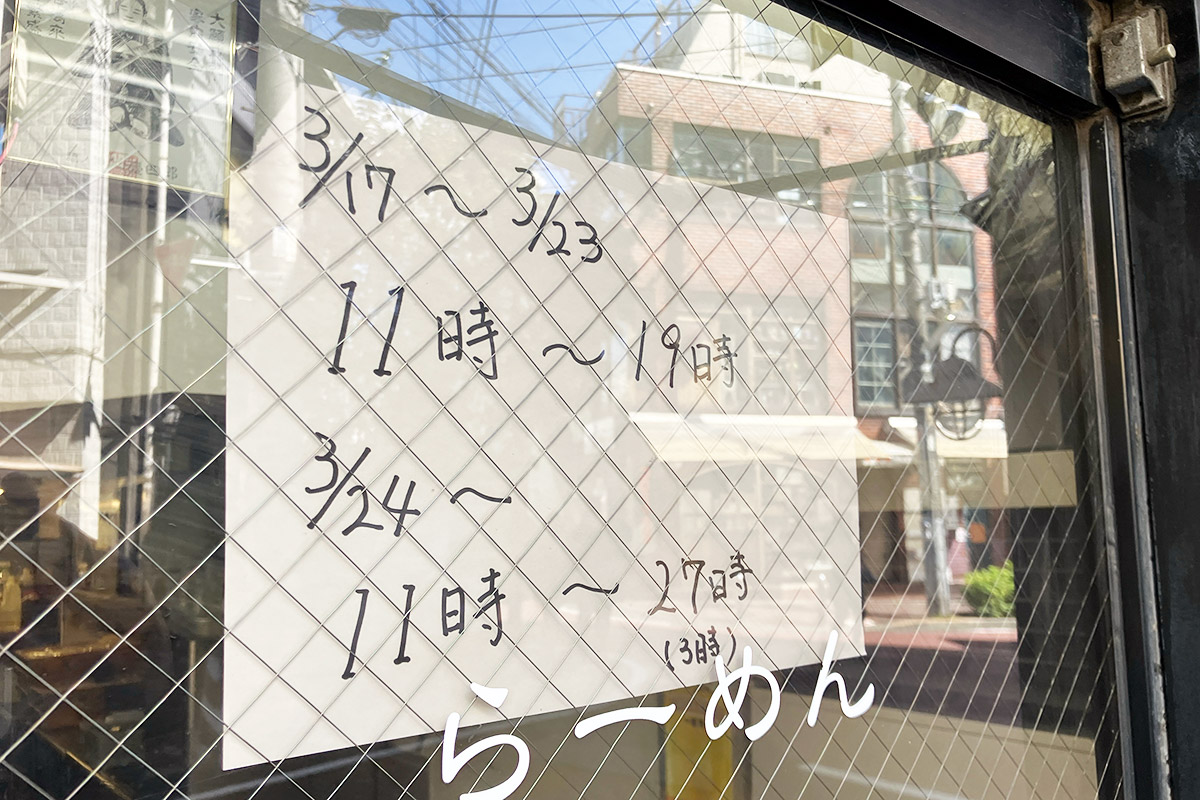 3/17 〜 3/23
11時 〜 19時
3/24 〜
11時 〜 27時
(3時)
らーめん